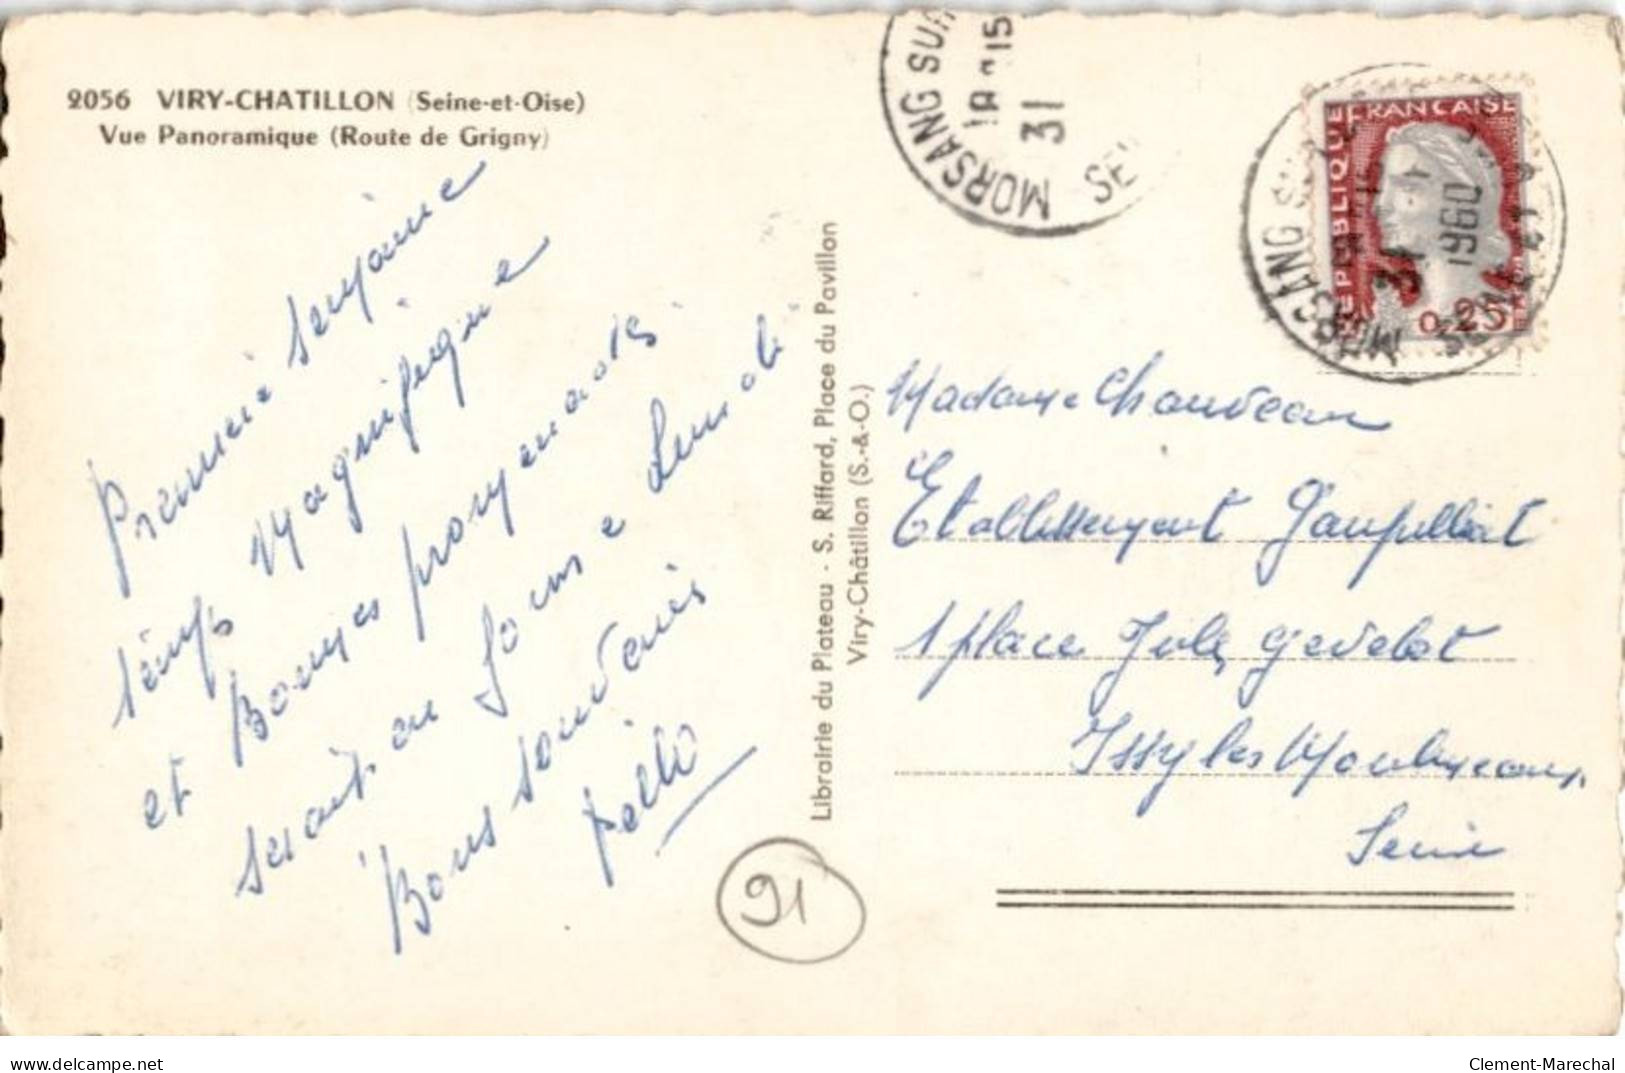 2056 VIRY-CHATILLON (Seine-et-Oise)
Vue Panoramique (Route de Grigny)
Première semaine
temps magnifique
et Bonnes promenades
serait en forme Lundi
Bons souvenirs
Librairie du Plateau - S. Riffard, Place du Pavillon
Viry-Châtillon (S.-&-O.)
MORSANG SUR
18 15
31
SE
REPUBLIQUE FRANCAISE
0,25
MORSANG SUR
31
1960
SEINE ET
Madame Chauveau
Etablissement
1 place Jules Gevelot
Issy les Moulineaux
Seine
91
delcampe.net
Clement-Marechal